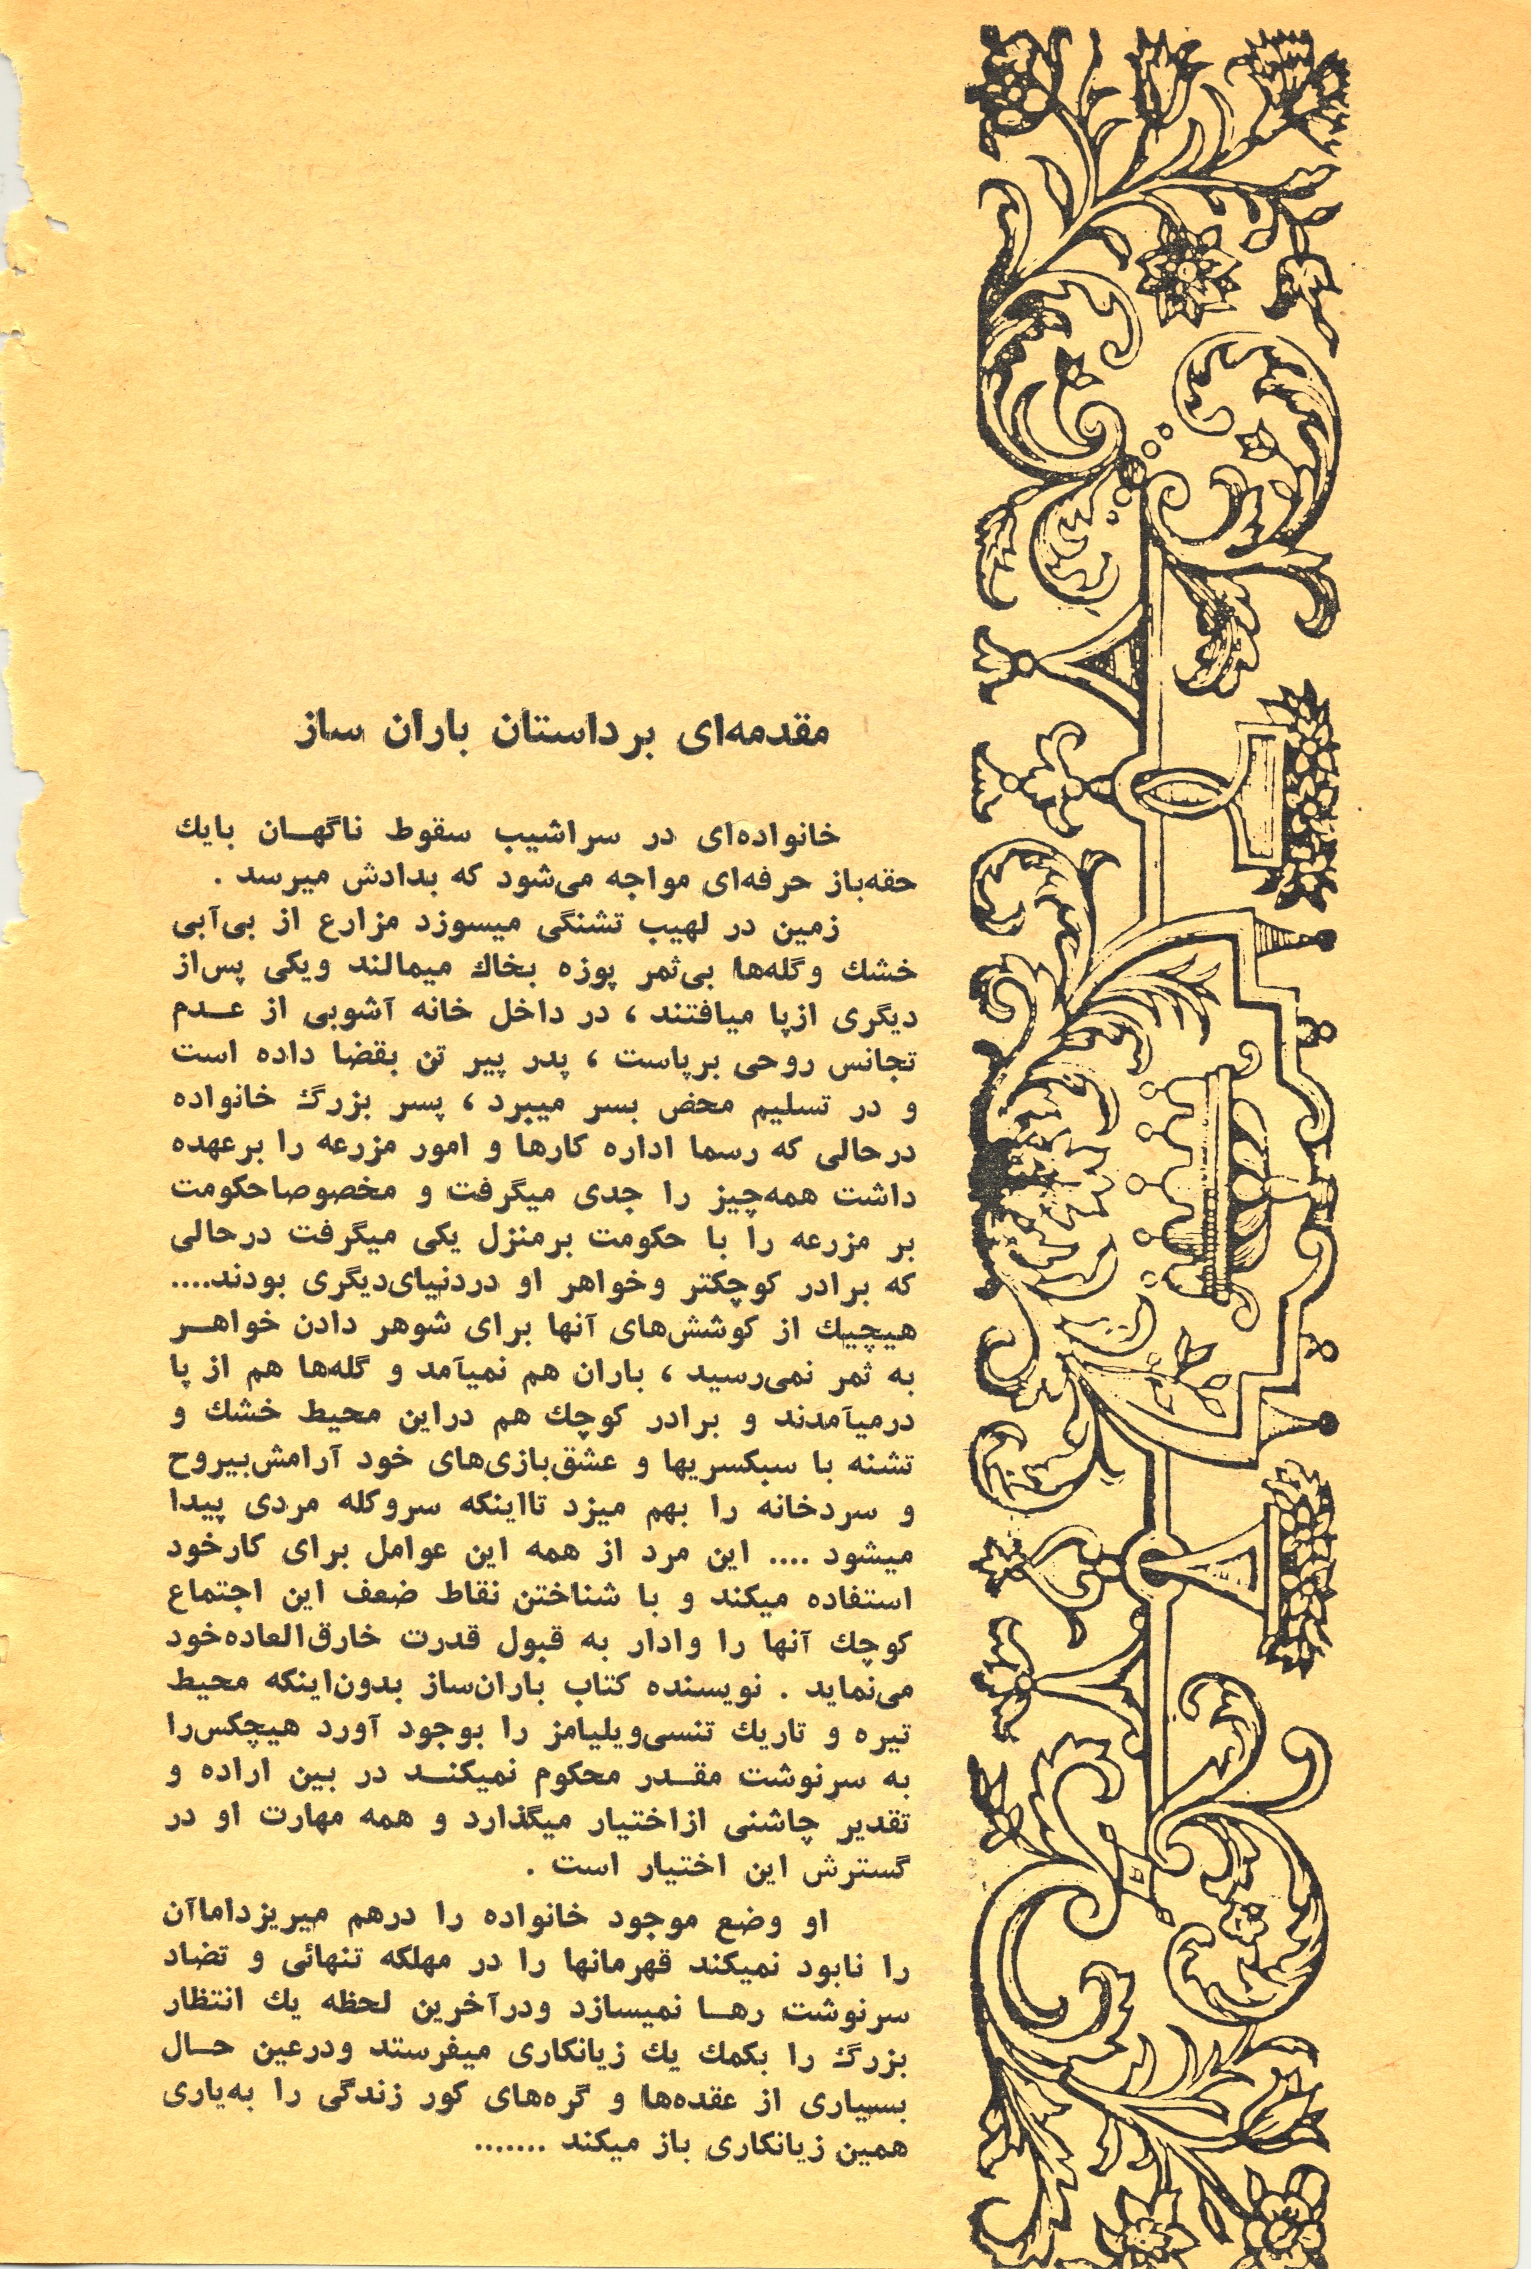 مقدمه‌ای بر داستان باران ساز
خانواده‌ای در سراشیب سقوط ناگهـان بایك
حقه‌باز حرفه‌ای مواجه می‌شود که بدادش میرسد .
زمین در لهیب تشنگی میسوزد مزارع از بی‌آبی
خشك وگله‌ها بی‌ثمر پوزه بخاك میمالند ویکی پس‌از
دیگری ازپا میافتند ، در داخل خانه آشوبی از عـدم
تجانس روحی برپاست ، پدر پیر تن بقضا داده است
و در تسلیم محض بسر میبرد ، پسر بزرگ خانواده
درحالی که رسما اداره کارها و امور مزرعه را برعهده
داشت همه‌چیز را جدی میگرفت و مخصوصاحکومت
بر مزرعه را با حکومت برمنزل یکی میگرفت درحالی
که برادر کوچکتر وخواهر او دردنیای‌دیگری بودند....
هیچیك از کوشش‌های آنها برای شوهر دادن خواهـر
به ثمر نمی‌رسید ، باران هم نمیآمد و گله‌ها هم از پا
درمیآمدند و برادر کوچك هم دراین محیط خشك و
تشنه با سبکسریها و عشق‌بازی‌های خود آرامش‌بیروح
و سردخانه را بهم میزد تااینکه سروکله مردی پیدا
میشود .... این مرد از همه این عوامل برای کارخود
استفاده میکند و با شناختن نقاط ضعف این اجتماع
کوچك آنها را وادار به قبول قدرت خارق‌العاده‌خود
می‌نماید . نویسنده کتاب باران‌ساز بدون‌اینکه محیط
تیره و تاریك تنسی‌ویلیامز را بوجود آورد هیچکس‌را
به سرنوشت مقـدر محکوم نمیکنـد در بین اراده و
تقدیر چاشنی ازاختیار میگذارد و همه مهارت او در
گسترش این اختیار است .
او وضع موجود خانواده را درهم میریزداماآن
را نابود نمیکند قهرمانها را در مهلکه تنهائی و تضاد
سرنوشت رهـا نمیسازد ودرآخرین لحظه یك انتظار
بزرگ را بکمك یك زیانکاری میفرستد ودرعین حـال
بسیاری از عقده‌ها و گره‌های کور زندگی را به‌یاری
همین زیانکاری باز میکند .......